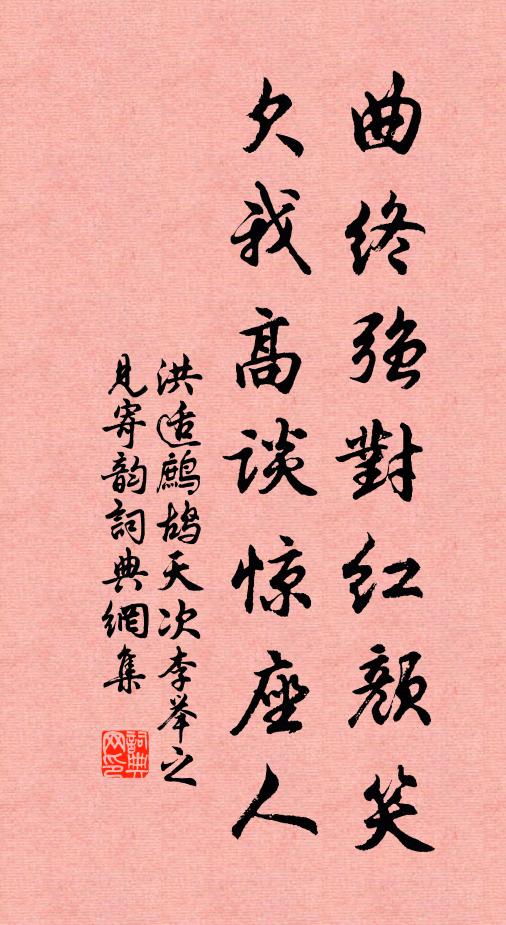 曲终強對红颜笑
欠我高谈惊座人
洪适鷓鸪天次李举之
見寄韵詞典網集
詞典网印